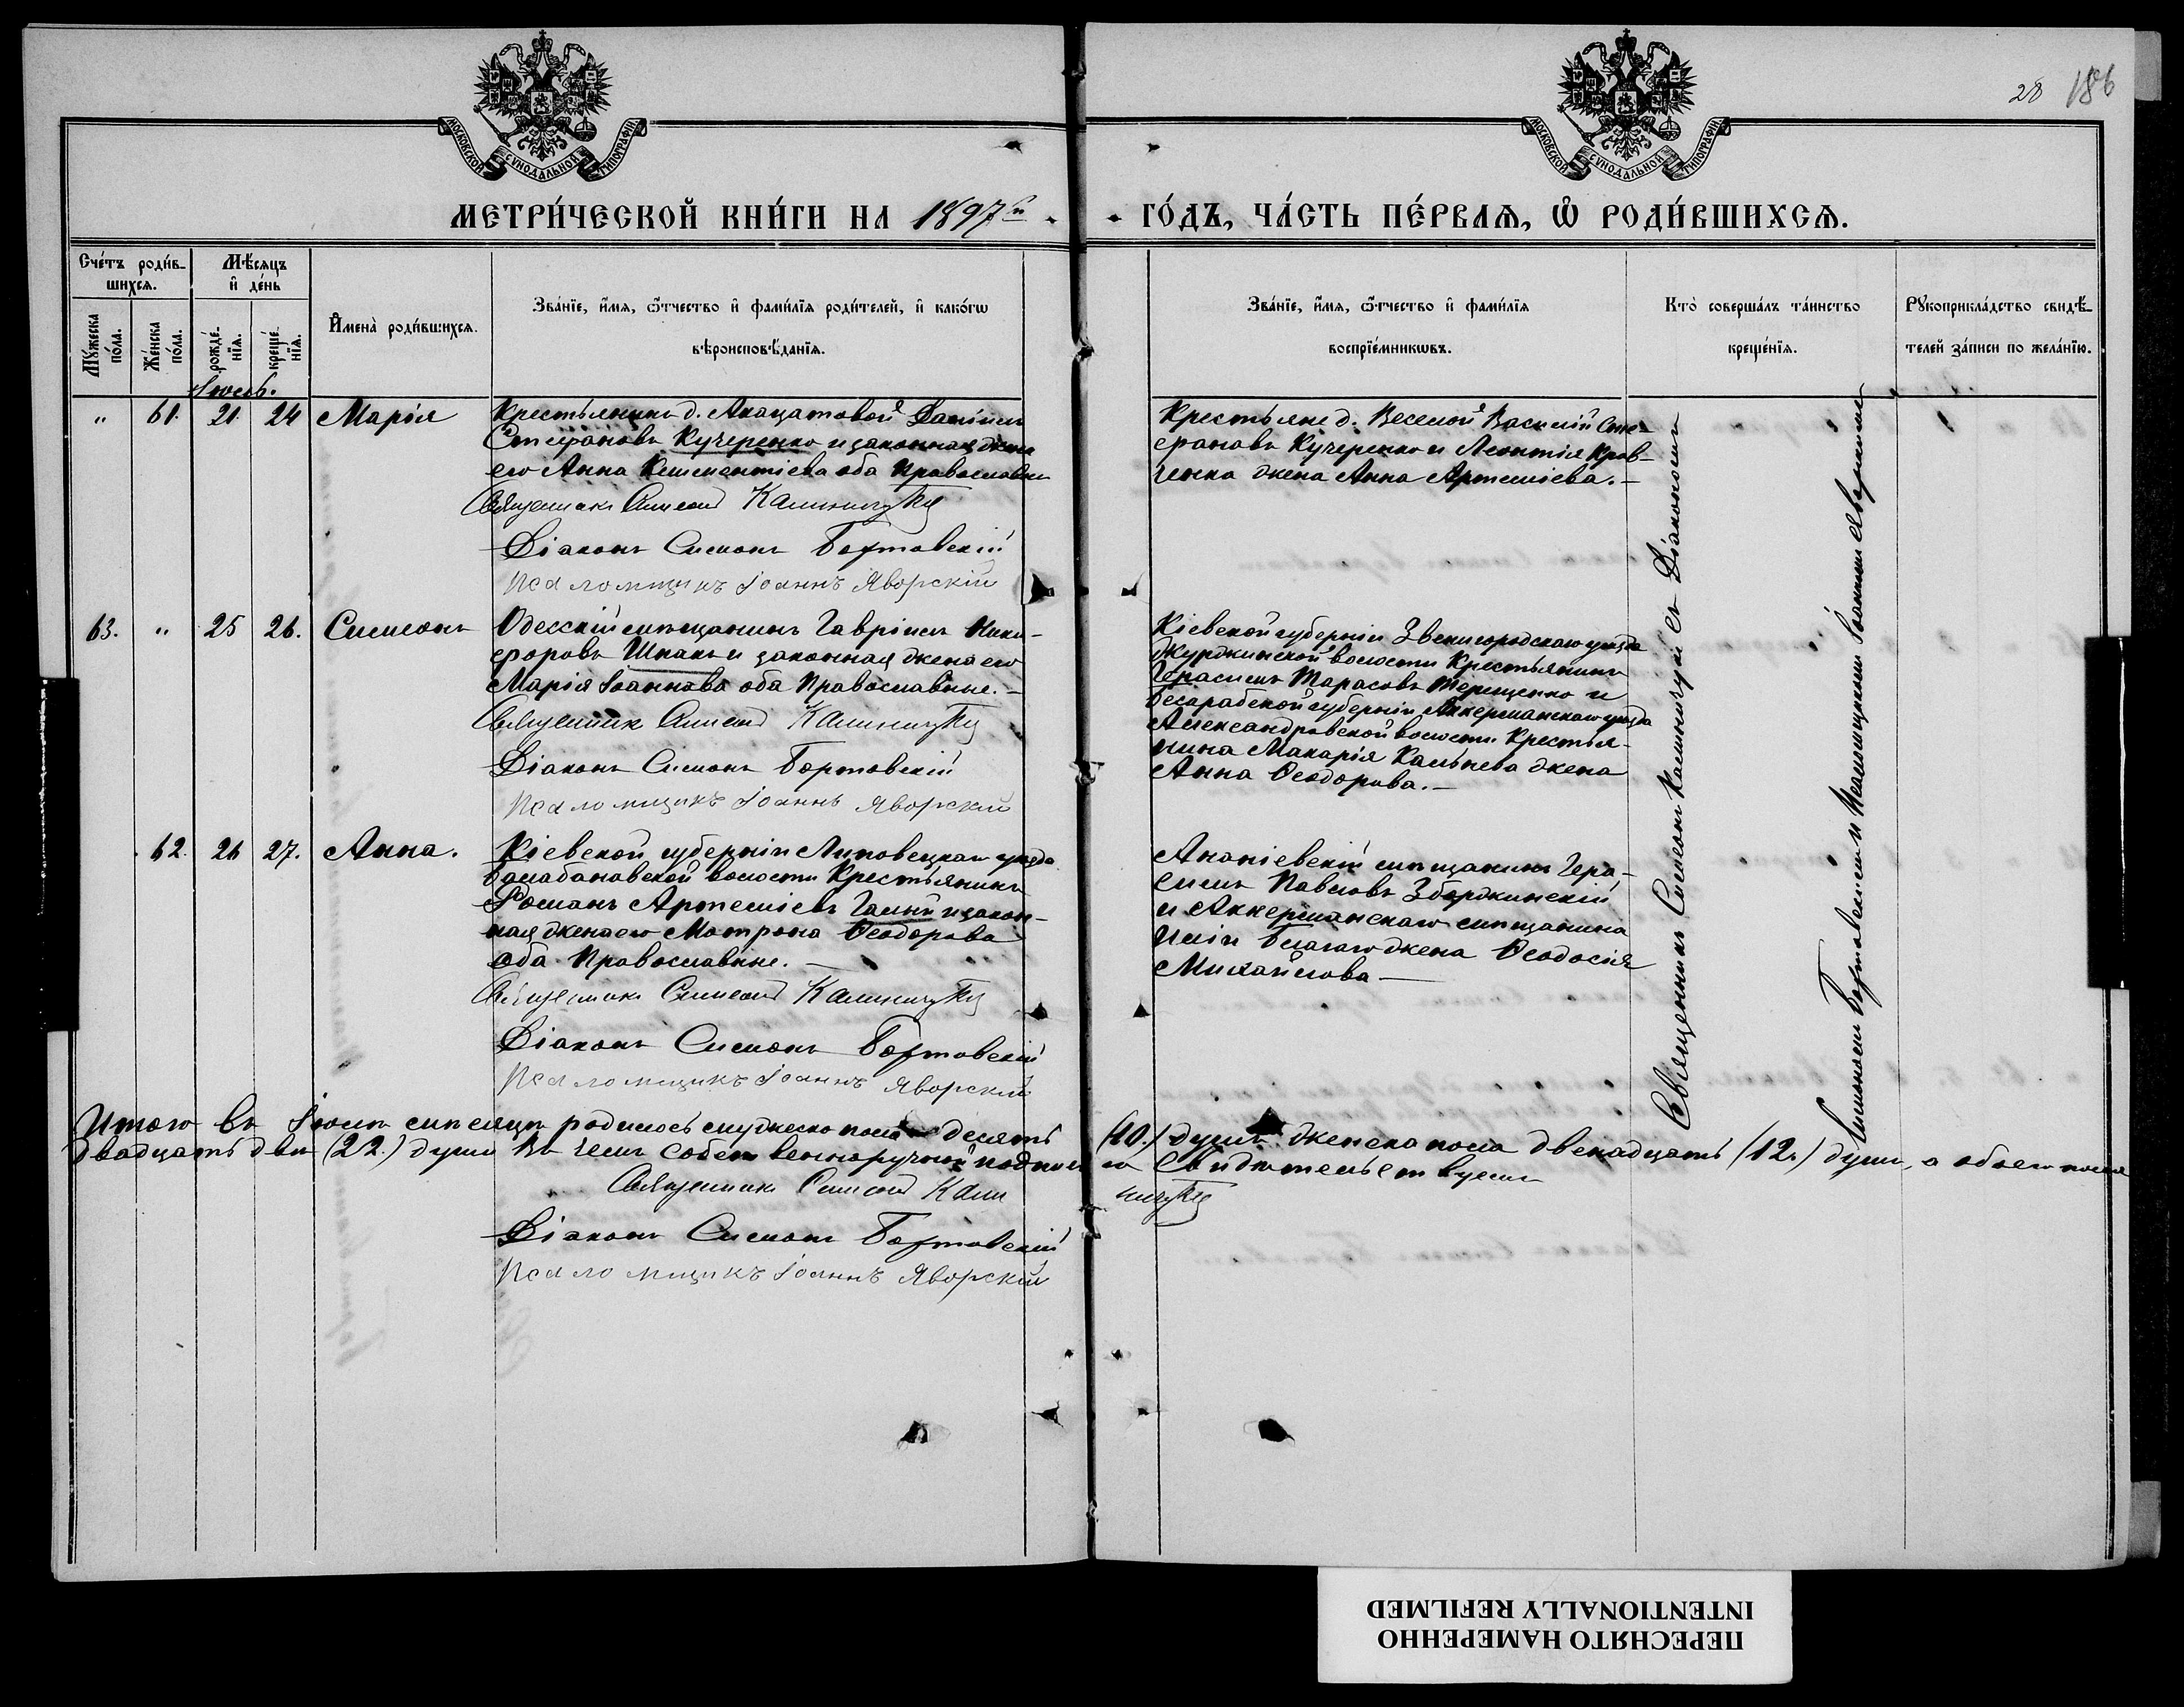 МОСКОВСКОЙ СѴНОДАЛЬНОЙ ТИПОГРАФІИ
МОСКОВСКОЙ СѴНОДАЛЬНОЙ ТИПОГРАФІИ
28 186
МЕТРИ́ЧЕСКОЙ КНИ́ГИ НА 1897й
ГО́ДЪ, ЧА́СТЬ ПЕ́РВАѦ, Ѡ҆ РОДИ́ВШИХСѦ.
Сче́тъ роди́в-
шихсѧ.
Мѣ́сѧцъ
и҆ де́нь
Мꙋ́жеска по́ла.
Же́нска по́ла.
рожде́-нїѧ.
креще́-нїѧ.
И҆мена̀ роди́вшихсѧ.
Зва́нїе, и҆́мѧ, ѻ҆́тчество и҆ фами́лїѧ роди́телей, и҆ како́гѡ
вѣроисповѣ́данїѧ.
Зва́нїе, и҆́мѧ, ѻ҆́тчество и҆ фами́лїѧ
воспрїе́мникѡвъ.
Кто̀ соверша́лъ та́инство
креще́нїѧ.
Рꙋкоприкла́дство свидѣ́-
телей за́писи по жела́нїю.
Іюль.
" 61. 21 24 Марія
Крестьянинъ д. Акацатовой Даніилъ
Стефановъ Кучеренко и законная жена
его Анна Климентіева оба Православны
Священникъ Симеонъ Калиничукъ
Діаконъ Симонъ Бортовскій
Псаломщикъ Іоаннъ Яворскій
Крестьяне д. Веселой Василій Сте-
фановъ Кучеренко и Леонтія Крав-
ченка жена Анна Артеміева.—
63. " 25 26. Симеонъ
Одесскій мѣщанинъ Гавріилъ Ники-
форовъ Шпакъ и законная жена его
Марія Іоаннова оба Православные.—
Священникъ Симеонъ Калиничукъ
Діаконъ Симонъ Бортовскій
Псаломщикъ Іоаннъ Яворскій
Кіевской губерніи Звенигородскаго уѣзда
Журжинской волости Крестьянинъ
Герасимъ Тарасовъ Терещенко и
Бессарабской губерніи Аккерманскаго уѣзда
Александровской волости Крестья-
нина Макарія Кальнева жена
Анна Ѳеодорова.—
62. 26 27. Анна.
Кіевской губерніи Липовецкаго уѣзда
Балабановской волости Крестьянинъ
Романъ Артеміевъ и закон-
ная жена его Матрона Ѳеодорова
оба Православные.—
Священникъ Симеонъ Калиничукъ
Діаконъ Симонъ Бортовскій
Псаломщикъ Іоаннъ Яворскій
Ананіевскій мѣщанинъ Гера-
симъ Павловъ Збержинскій
и Аккерманскаго мѣщанина
жена Ѳеодосія
Михайлова—
Священникъ Симеонъ Калиничукъ съ Діакономъ
Симономъ Бортовскимъ и Псаломщикомъ Іоанномъ Яворскимъ
Итого въ Іюлѣ мѣсяцѣ родилось мужеска пола десять (10.) душъ женска пола двенадцать (12.) душъ, а обоего пола
двадцать двѣ (22.) души въ чемъ собственноручной подписью свидѣтельствуемъ
Священникъ Симеонъ Калиничукъ
Діаконъ Симонъ Бортовскій
Псаломщикъ Іоаннъ Яворскій
ПЕРЕСНЯТО НАМЕРЕННО
INTENTIONALLY REFILMED